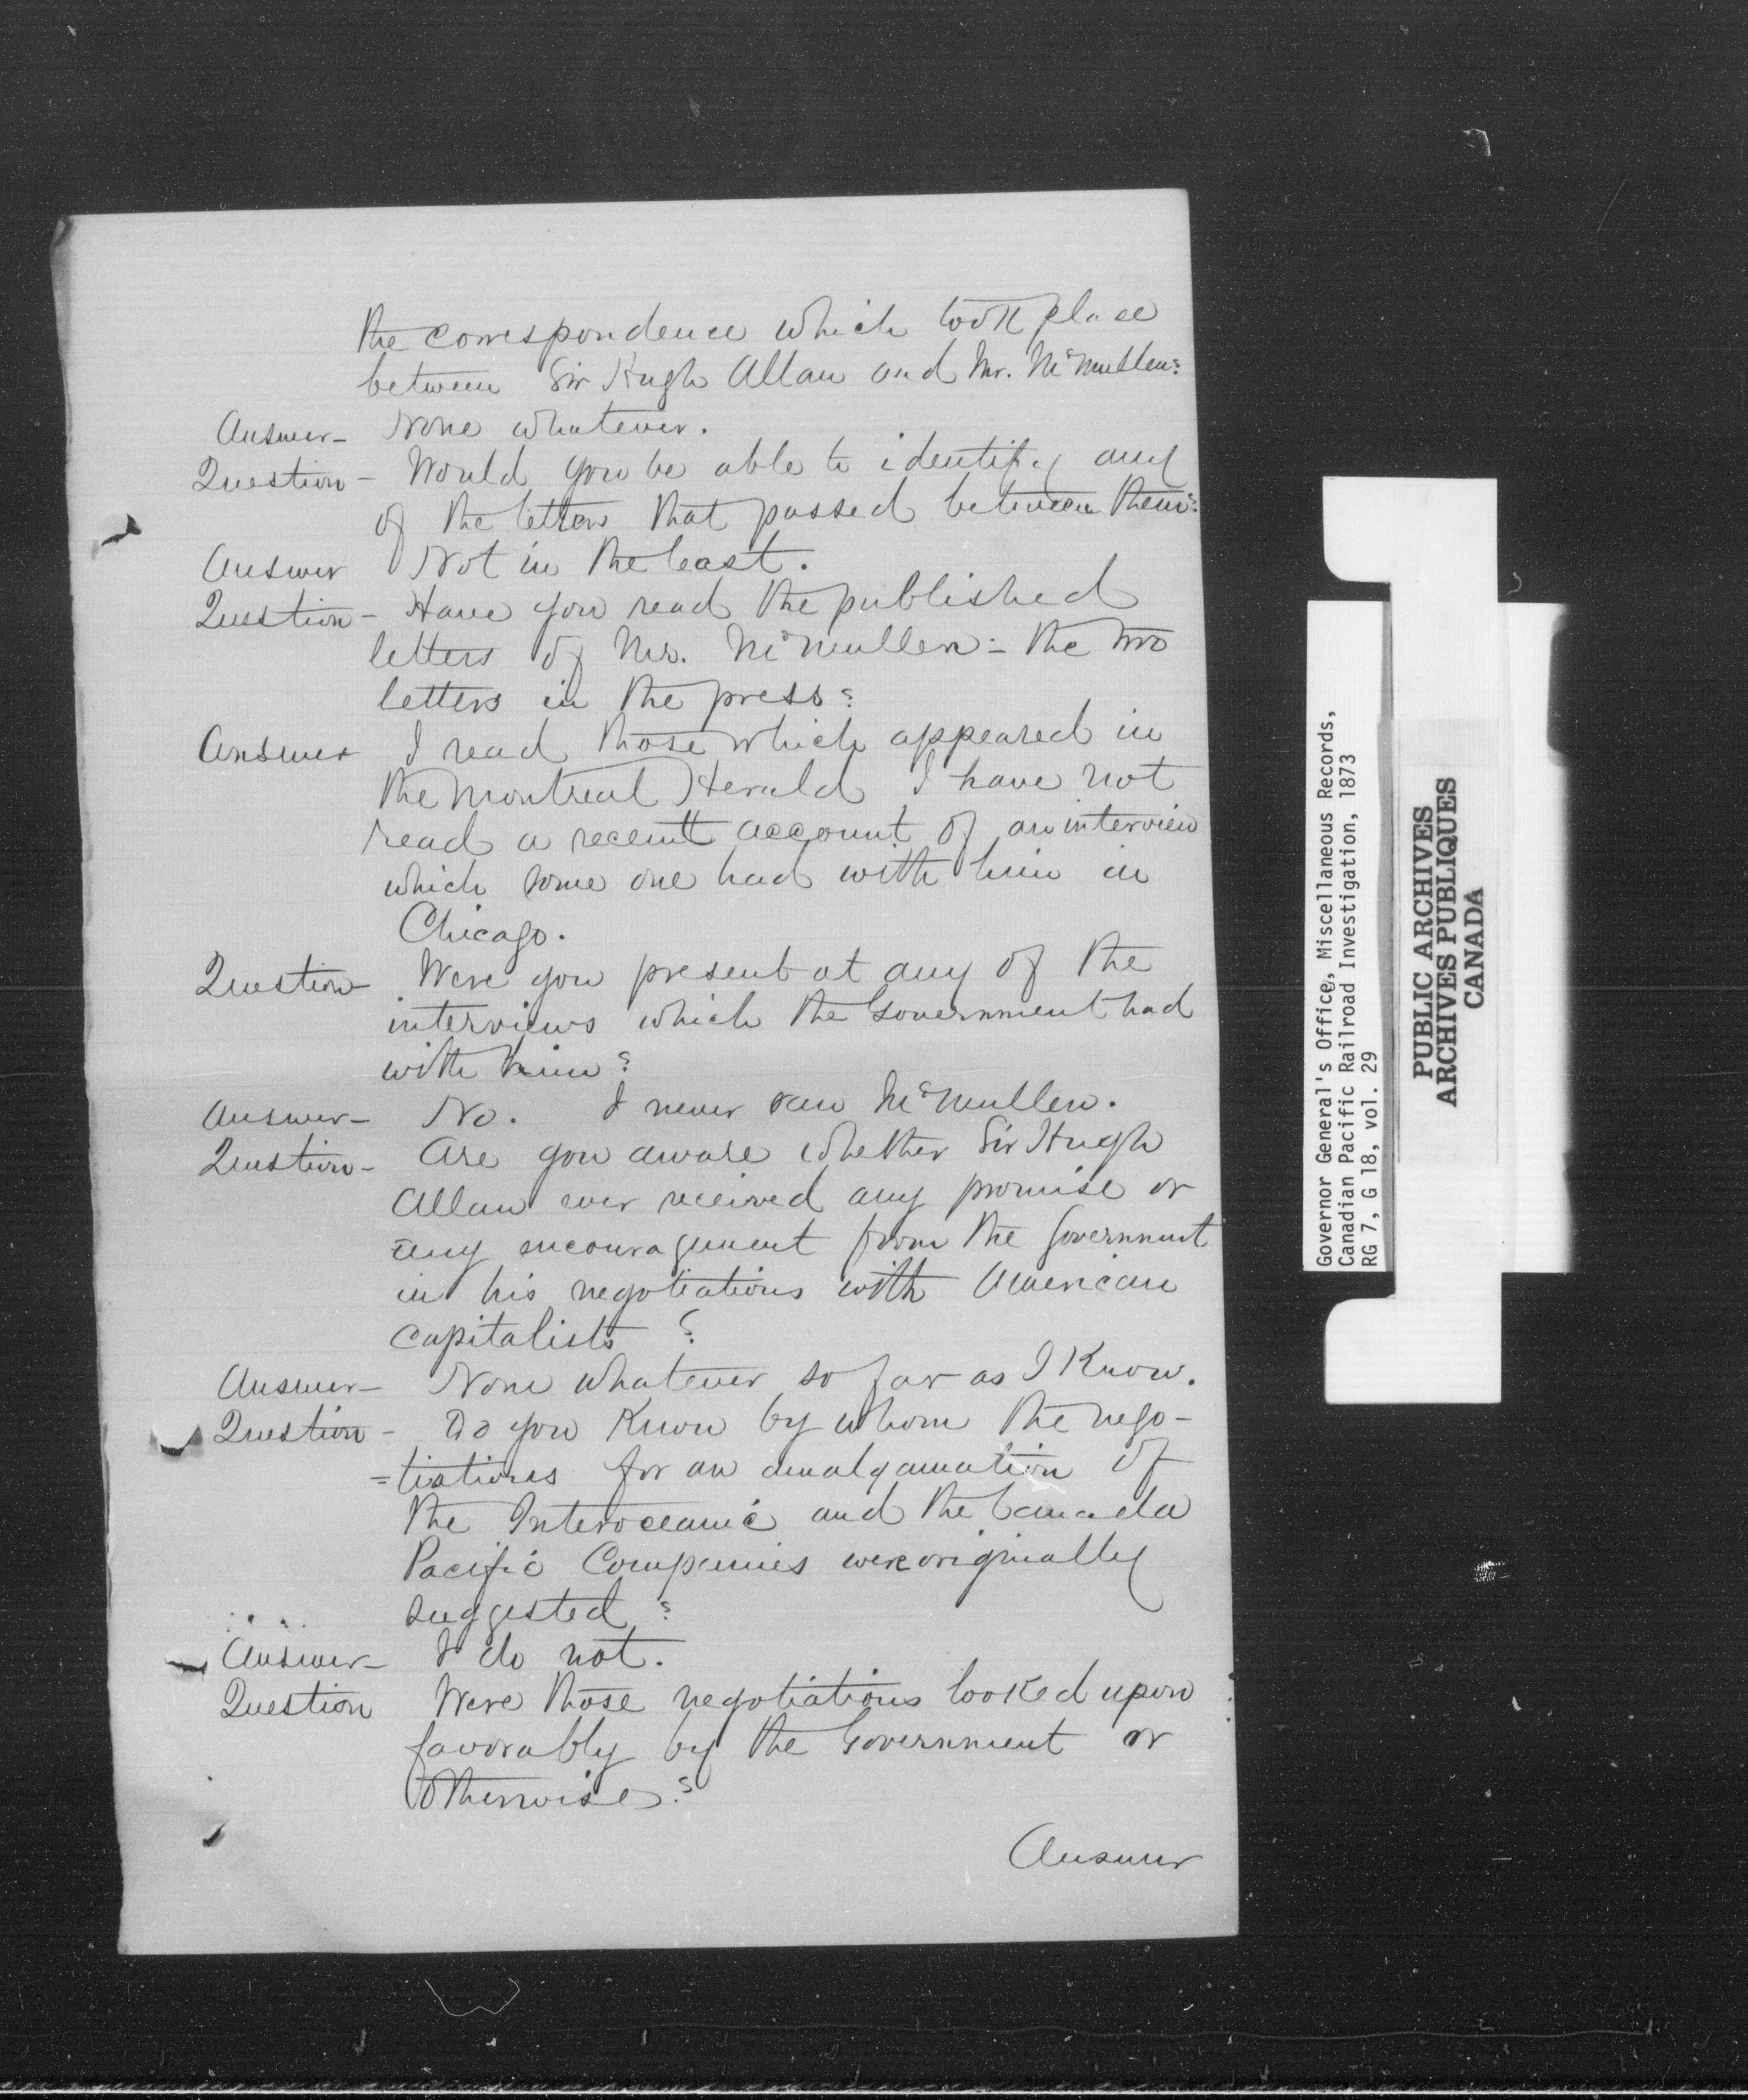 the correspondence which took place
between Sir Hugh Allan and Mr. McMullen?
Answer - None whatever.
Question - Would you be able to identify any
of the letters that passed between them?
Answer Not in the least.
Question - Have you read the published
letters of Mr. McMullen - the two
letters in the press?
Answer I read those which appeared in
the Montreal Herald I have not
read a recent account of an interview
which some one had with him in
Chicago.
Question - Were you present at any of the
interviews which the Government had
with him?
Answer - No. I never saw McMullen.
Question - Are you aware whether Sir Hugh
Allan ever received any promise or
any encouragement from the Government
in his negotiations with American
capitalists?
Answer - None whatever so far as I know.
Question - Do you know by whom the nego-
=tiations for an amalgamation of
the Interoceanic and the Canada
Pacific Companies were originally
suggested?
Answer - I do not.
Question Were those negotiations looked upon
favorably by the Government or
otherwise?
Answer
Governor General's Office, Miscellaneous Records,
Canadian Pacific Railroad Investigation, 1873
RG 7, G 18, vol. 29
PUBLIC ARCHIVES
ARCHIVES PUBLIQUES
CANADA